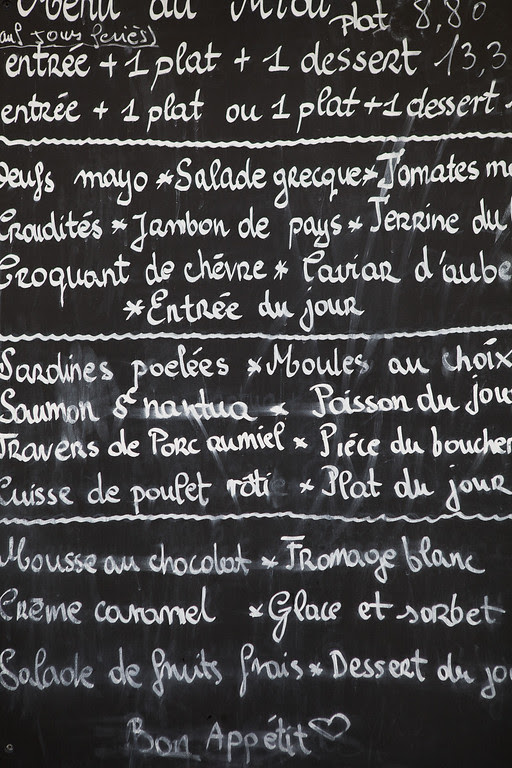 Menu du Midi
plat 8,80
auf jours feriés)
entrée + 1 plat + 1 dessert 13,3
entrée + 1 plat ou 1 plat + 1 dessert
Oeufs mayo * Salade grecque * Tomates mo
Crudités * Jambon de pays * Terrine du
Croquant de chévre * Caviar d'aube
* Entrée du jour
Sardines poelées * Moules au choix
Saumon sce nantua * Poisson du jou
Travers de Porc au miel * Piéce du boucher
Cuisse de poulet rôti * Plat du jour
Mousse au chocolat * Fromage blanc
Crème caramel * Glace et sorbet
Salade de fruits frais * Dessert du jo
Bon Appétit ♡